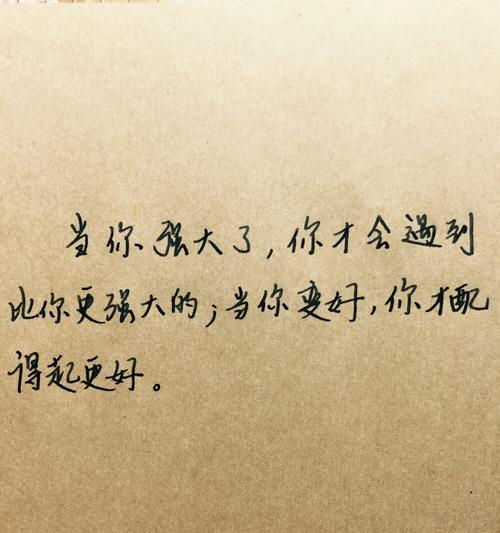 当你强大了,你才会遇到
比你更强大的;当你变好,你才配
得起更好。